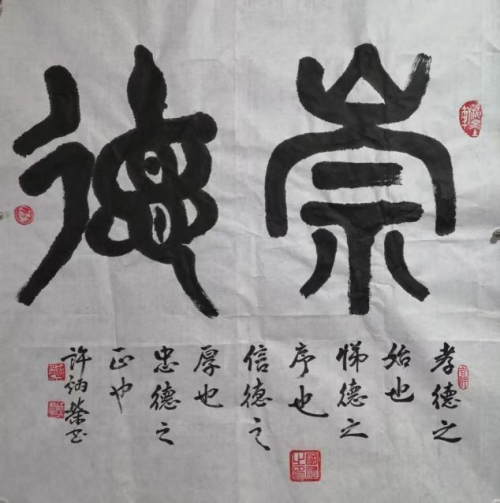 崇德
孝德之
始也
悌德之
序也
信德之
厚也
忠德之
正也
许炳荣书